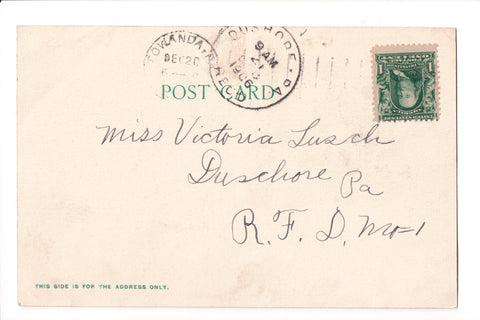 TOWANDA,
DEC 20
DUSHORE · PA
9 AM
1906
REC'D
POST CARD
1 1
Miss Victoria Lusch
Duschore Pa
R. F. D. No-1
THIS SIDE IS FOR THE ADDRESS ONLY.